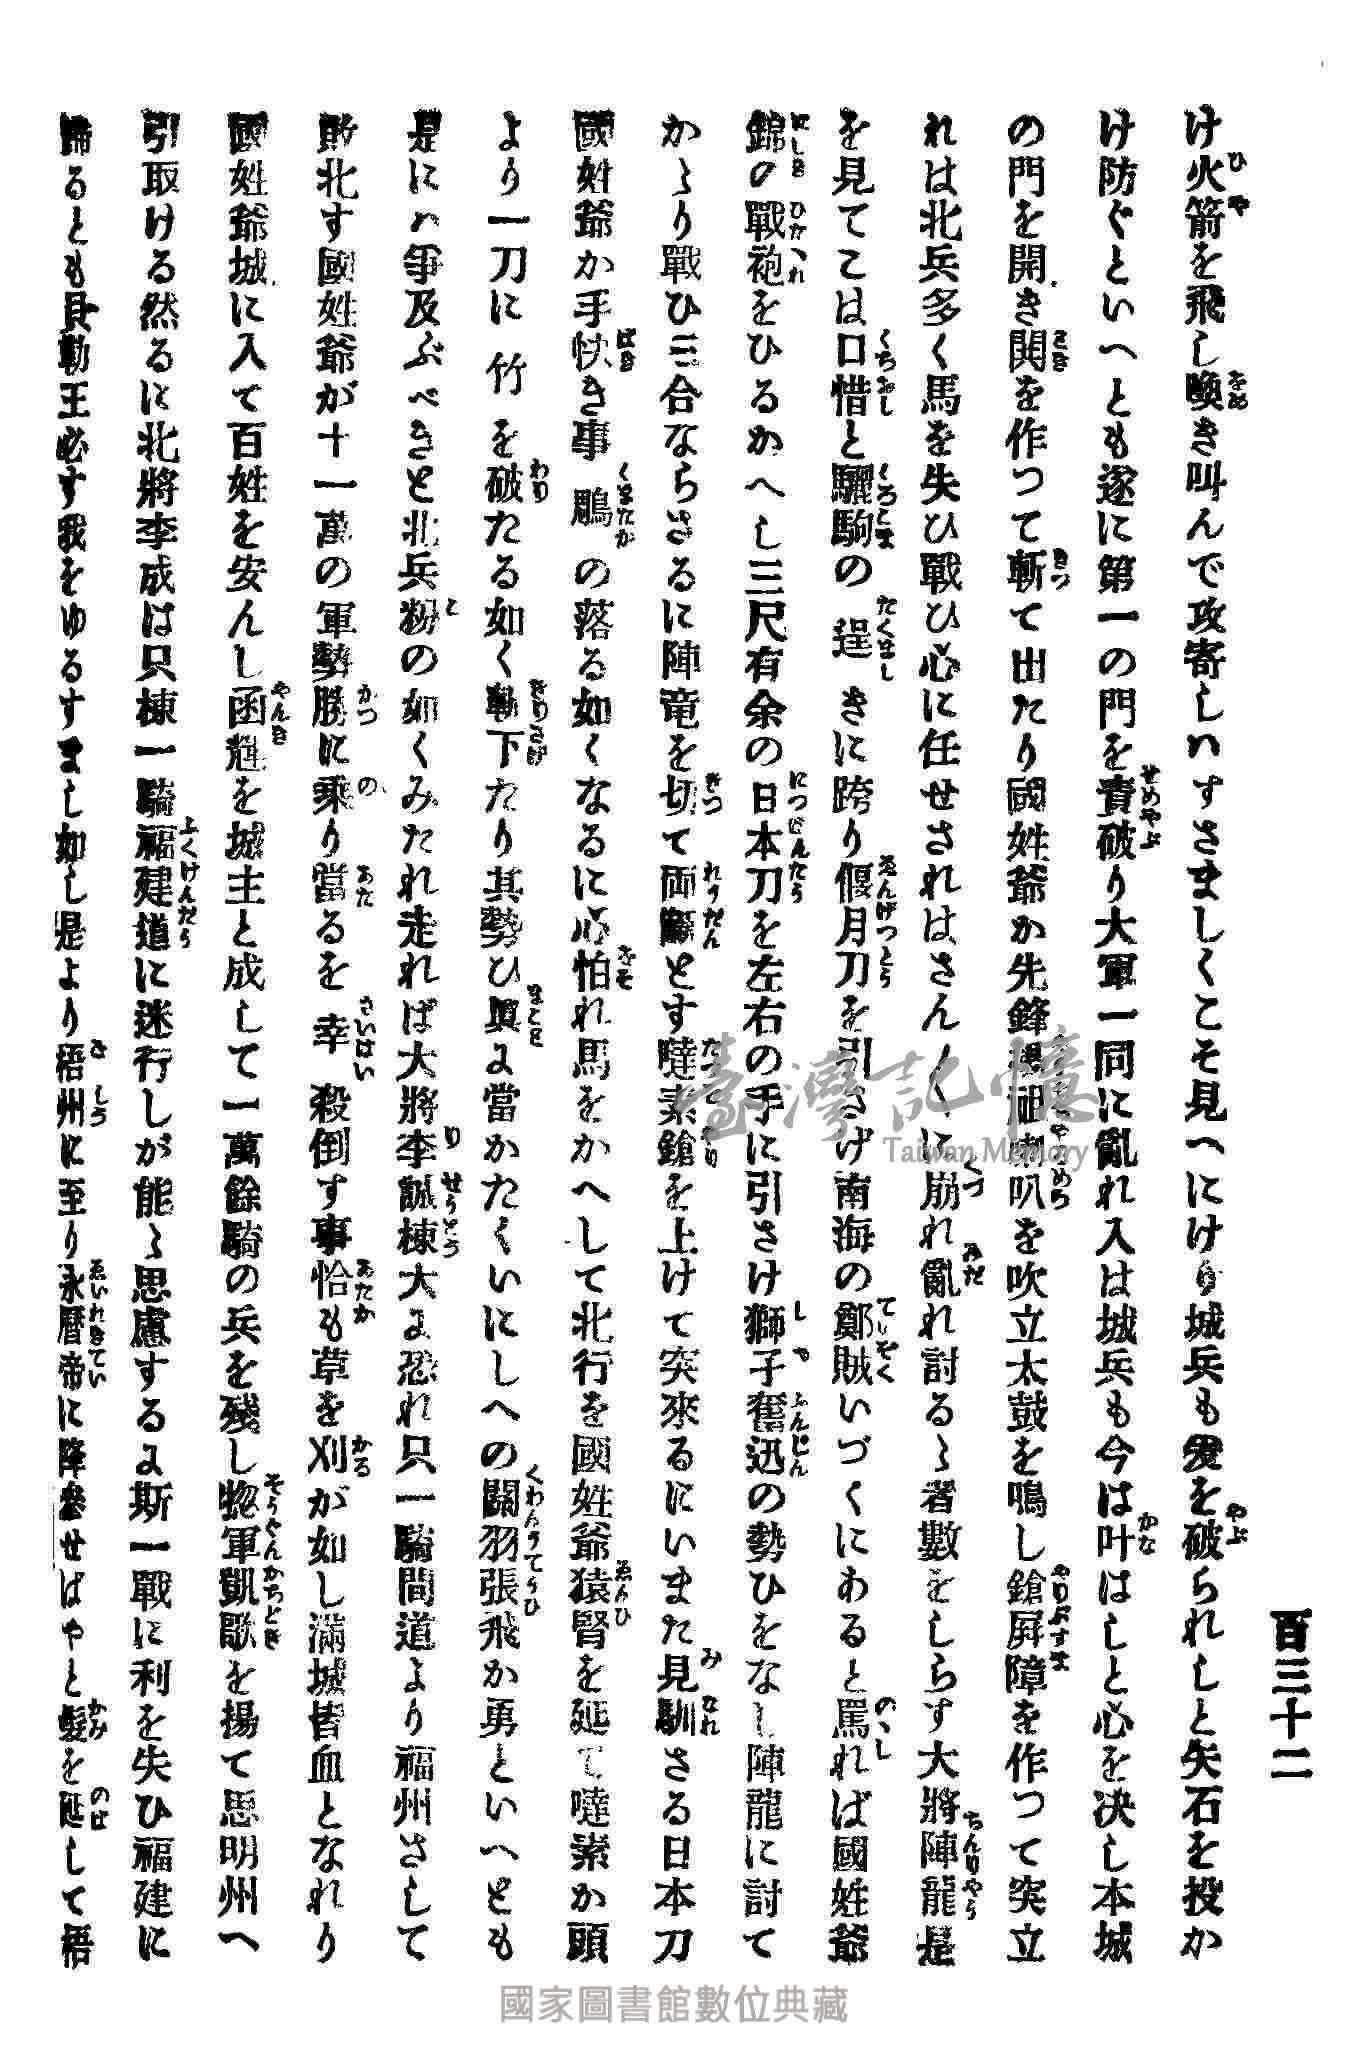 百三十二
け火箭を飛し喚き叫んで攻寄しハすさましくこそ見へにけり城兵も爰を破られしと矢石を投か
け防ぐといへとも遂に第一の門を責破り大軍一同に亂れ入は城兵も今は叶はしと心を决し本城
の門を開き鬨を作つて斬て出たり國姓爺か先鋒 喇叭を吹立太鼓を鳴し鎗屏障を作つて突立
れは北兵多く馬を失ひ戰ひ心に任せされはさん〱に崩れ亂れ討るゝ者數をしらす大將陣龍是
を見てこは口惜と驪駒の逞きに跨り偃月刀を引さげ南海の鄭賊いづくにわると罵れば國姓爺
錦の戰袍をひるかへし三尺有余の日本刀を左右の手に引さけ獅子奮迅の勢ひをなし陣龍に討て
かゝり戰ひ三合ならさるに陣竜を切て両斷とす噠素鎗を上けて突來るにいまた見馴さる日本刀
國姓爺か手快き事鵰の落る如くなるに心怕れ馬をかへして北行を國姓爺猿臂を延て噠素か頭
より一刀に竹を破たる如く斬下たり其勢ひ眞よ當かたくいにしへの關羽張飛か勇といへとも
是にハ爭及ぶべきと北兵粉の如くみたれ走れば大將李誠棟大よ恐れ只一騎間道より福州さして
敗北す國姓爺が十一萬の軍勢勝に乘り當るを幸殺倒す事恰も草を刈が如し滿城皆血となれり
國姓爺城に入て百姓を安んし函尪を城主と成して一萬餘騎の兵を殘し惣軍凱歌を揚て思明州へ
引取ける然るに北將李成は只棟一騎福建道に迷行しが能ゝ思慮するよ斯一戰に利を失ひ福建に
歸るとも貝勒王必す我をゆるすまし如し是より梧州に至り永曆帝に降參せばやと髮を延して梧